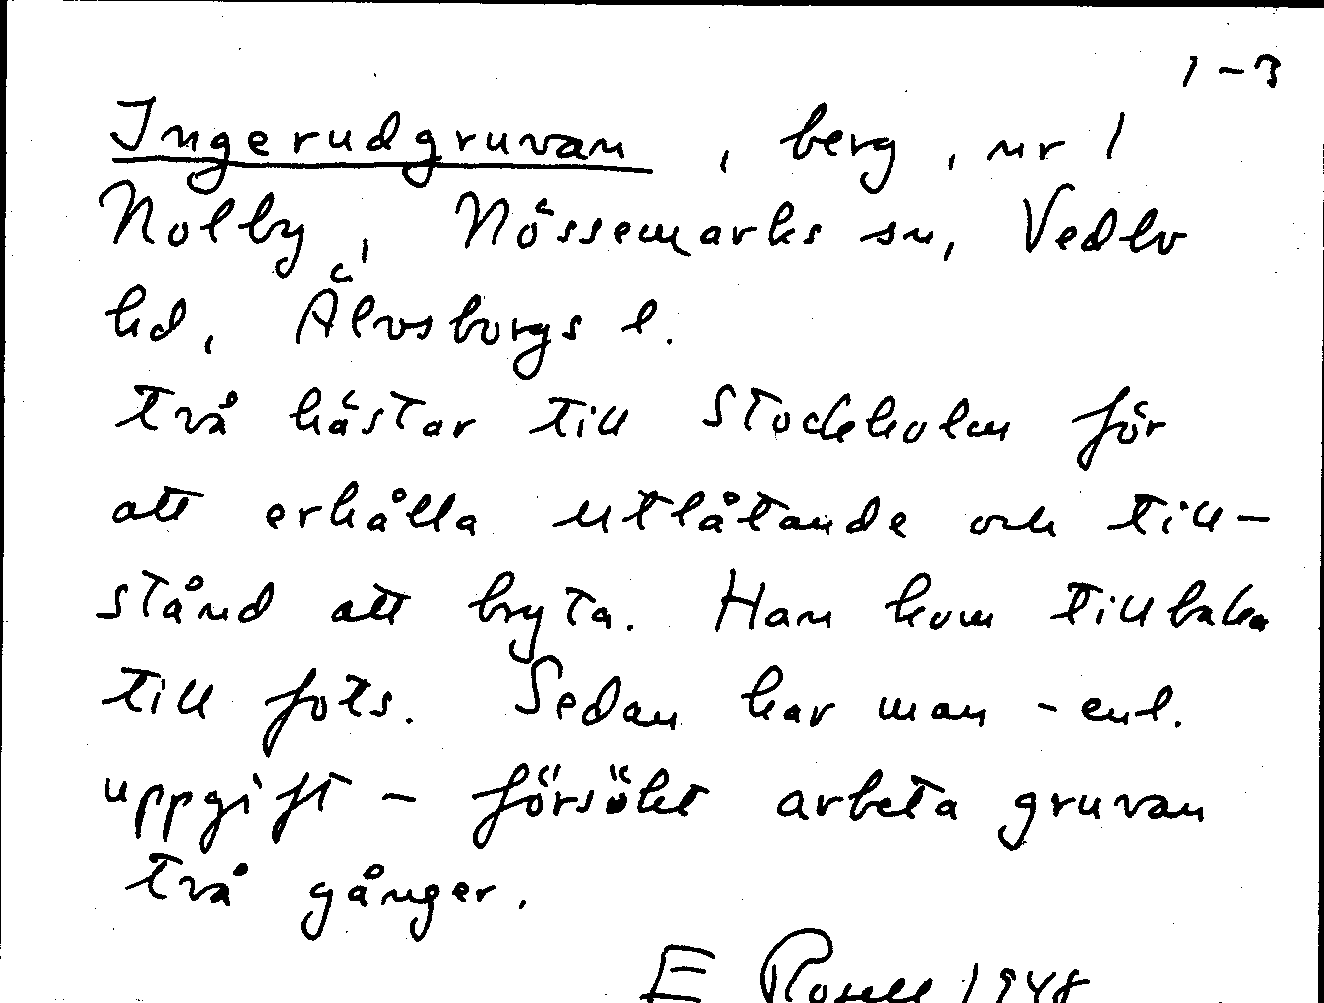 1-3
Ingerudgruvan, berg, nr 1
Nolby, Nössemarks sn, Vedbo
hd, Älvsborgs l.
två hästar till Stockholm för
att erhålla utlåtande och till-
stånd att bryta. Han kom tillbaka
till fots. Sedan har man - enl.
uppgift - försökt arbeta gruvan
två gånger.
E Rosell 1948